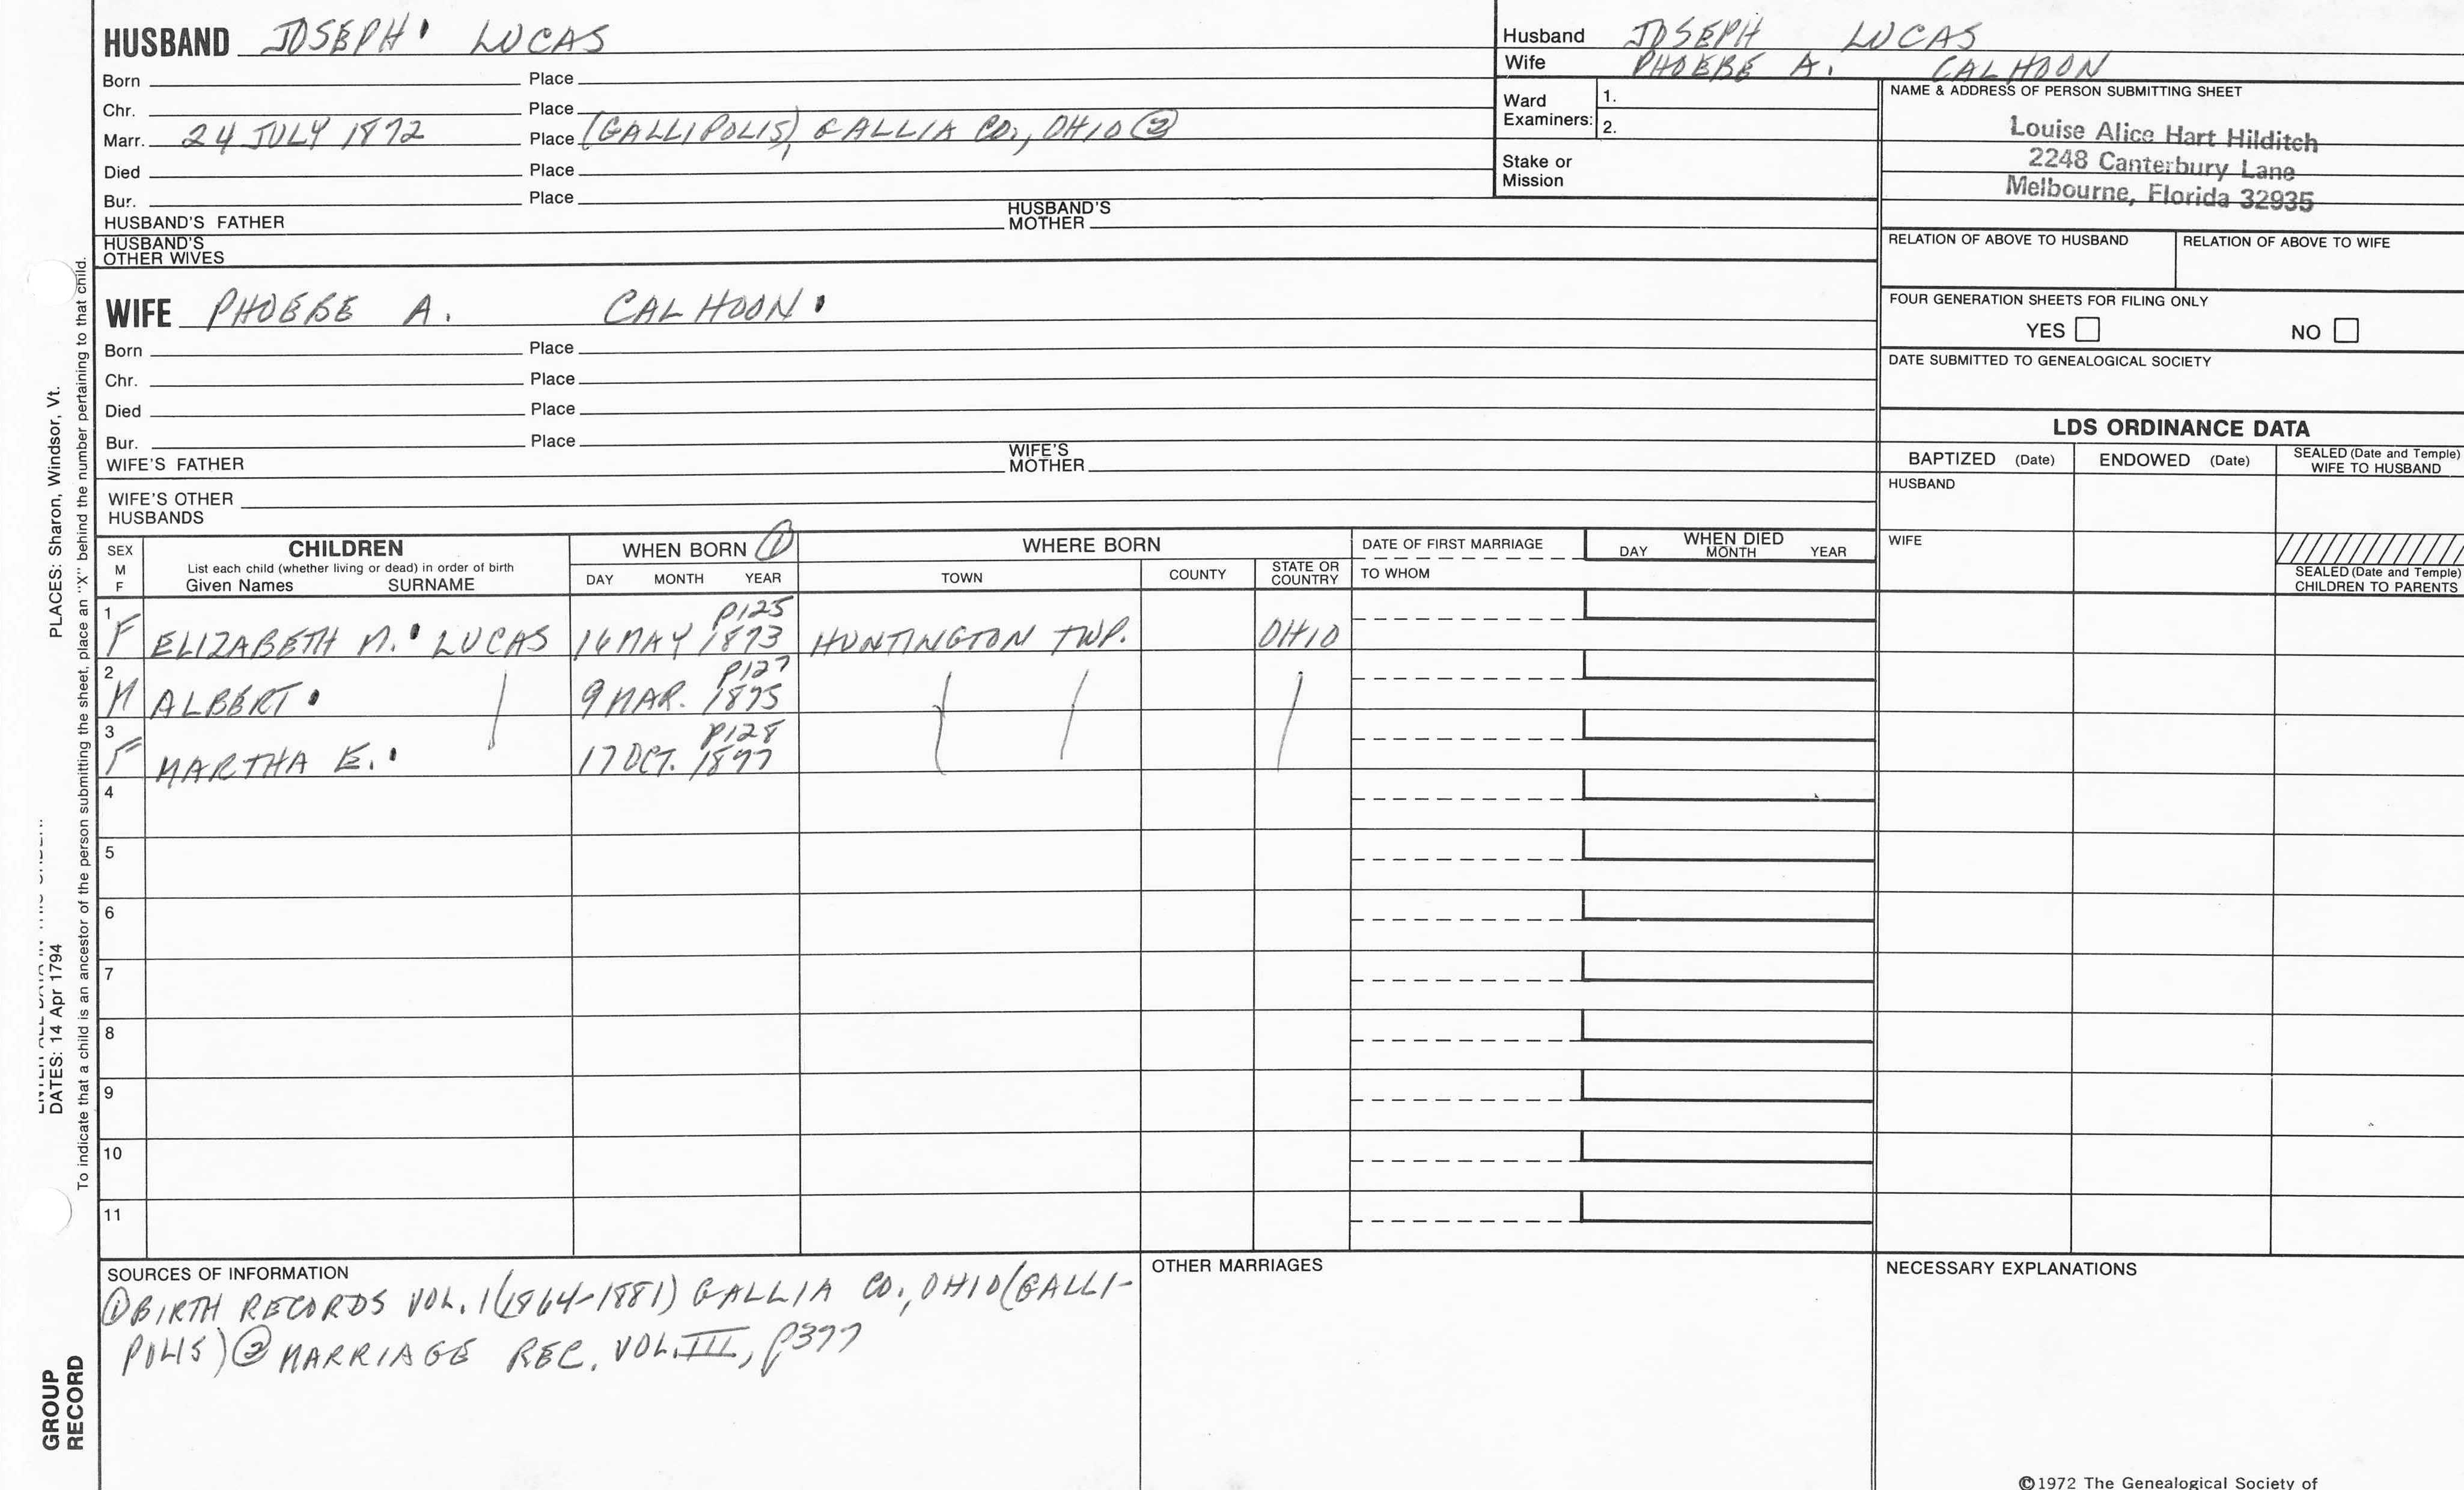 HUSBAND JOSEPH LUCAS
Born Place
Chr. Place
Marr. 24 JULY 1872 Place (GALLIPOLIS), GALLIA CO., OHIO ②
Died Place
Bur. Place
HUSBAND'S FATHER HUSBAND'S MOTHER
HUSBAND'S OTHER WIVES
Husband JOSEPH LUCAS
Wife PHOEBE A. CALHOON
Ward Examiners: 1.
2.
Stake or Mission
NAME & ADDRESS OF PERSON SUBMITTING SHEET
Louise Alice Hart Hilditch
2248 Canterbury Lane
Melbourne, Florida 32935
RELATION OF ABOVE TO HUSBAND RELATION OF ABOVE TO WIFE
FOUR GENERATION SHEETS FOR FILING ONLY
YES NO
DATE SUBMITTED TO GENEALOGICAL SOCIETY
WIFE PHOEBE A. CALHOON
Born Place
Chr. Place
Died Place
Bur. Place
WIFE'S FATHER WIFE'S MOTHER
WIFE'S OTHER HUSBANDS
LDS ORDINANCE DATA
BAPTIZED (Date) ENDOWED (Date) SEALED (Date and Temple) WIFE TO HUSBAND
HUSBAND
WIFE
SEALED (Date and Temple) CHILDREN TO PARENTS
SEX M F
CHILDREN
List each child (whether living or dead) in order of birth
Given Names SURNAME
WHEN BORN ①
DAY MONTH YEAR
WHERE BORN
TOWN COUNTY STATE OR COUNTRY
DATE OF FIRST MARRIAGE
TO WHOM
WHEN DIED
DAY MONTH YEAR
1 P125
F ELIZABETH M. LUCAS 16 MAY 1873 HUNTINGTON TWP. OHIO
2 P127
M ALBERT 9 MAR. 1875
3 P128
F MARTHA E. 17 OCT. 1877
4
5
6
7
8
9
10
11
SOURCES OF INFORMATION
① BIRTH RECORDS VOL. 1 (1864-1881) GALLIA CO., OHIO (GALLI-
POLIS) ② MARRIAGE REC. VOL. III, P377
OTHER MARRIAGES
NECESSARY EXPLANATIONS
©1972 The Genealogical Society of
PLACES: Sharon, Windsor, Vt.
DATES: 14 Apr 1794
To indicate that a child is an ancestor of the person submitting the sheet, place an "X" behind the number pertaining to that child.
GROUP
RECORD